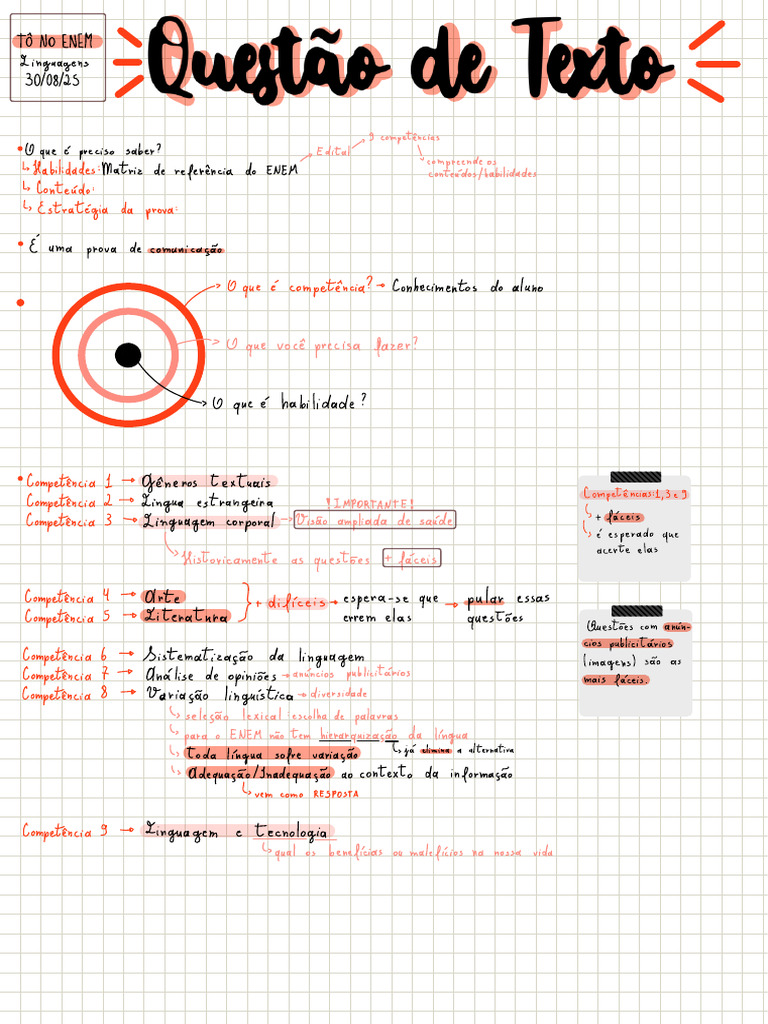 TÔ NO ENEM
Linguagens
30/08/25
Questão de Texto
•O que é preciso saber?
↳ Habilidades: Matriz de referência do ENEM → Edital → 9 competências
↳ compreende os
conteúdos/habilidades
↳ Conteúdo:
↳ Estratégia da prova:
• É uma prova de comunicação
• O que é competência? → Conhecimentos do aluno
O que você precisa fazer?
O que é habilidade?
• Competência 1 → Gêneros textuais
Competência 2 → Língua estrangeira
!IMPORTANTE!
Competência 3 → Linguagem corporal → Visão ampliada de saúde
↳ Historicamente as questões + fáceis
Competências:1, 3 e 9
↳ + fáceis
↳ é esperado que
acerte elas
Competência 4 → Arte
Competência 5 → Literatura
+ difíceis → espera-se que → pular essas
errem elas questões
Questões com anún-
cios publicitários
(imagens) são as
mais fáceis.
Competência 6 → Sistematização da linguagem
Competência 7 → Análise de opiniões → anúncios publicitários
Competência 8 → Variação linguística → diversidade
↳ seleção lexical: escolha de palavras
↳ para o ENEM não tem hierarquização da língua
↳ já elimina a alternativa
↳ toda língua sofre variação
↳ Adequação/Inadequação ao contexto da informação
↳ vem como RESPOSTA
Competência 9 → Linguagem e tecnologia
↳ qual os benefícias ou malefícios na nossa vida